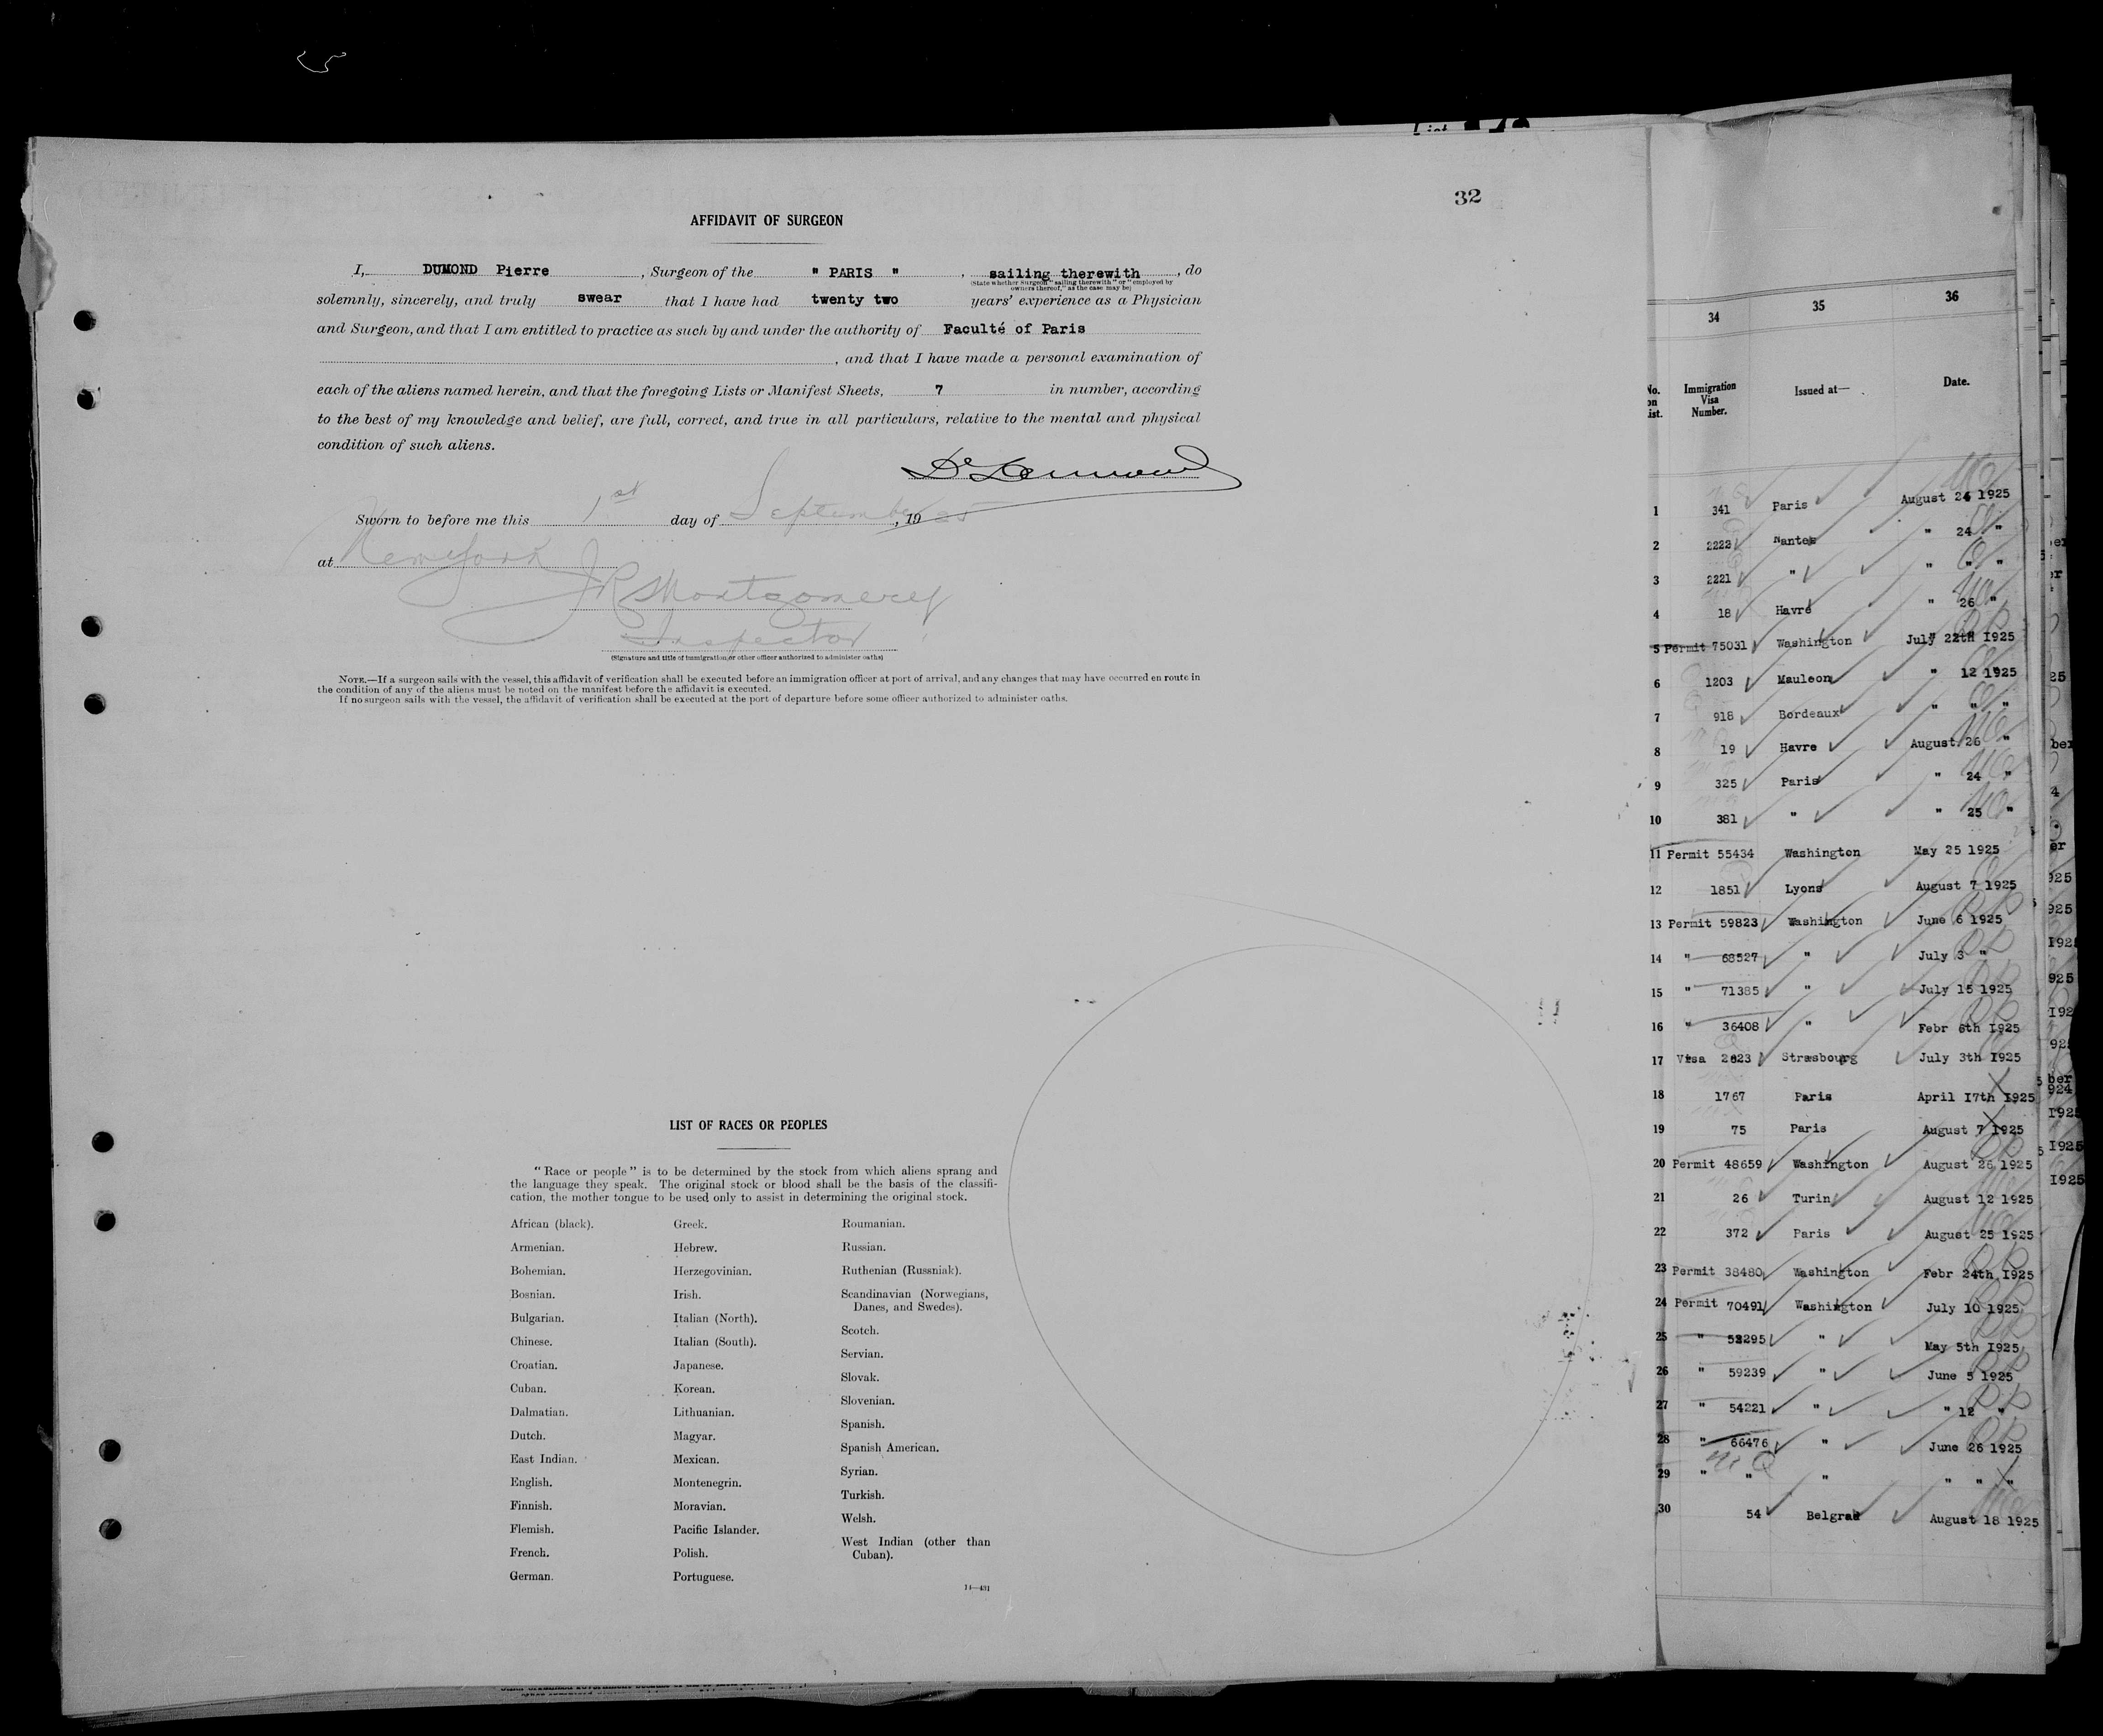 32
AFFIDAVIT OF SURGEON
I, DUMOND Pierre , Surgeon of the " PARIS " , sailing therewith , do
(State whether Surgeon "sailing therewith" or "employed by
owners thereof," as the case may be)
solemnly, sincerely, and truly swear that I have had twenty two years' experience as a Physician
and Surgeon, and that I am entitled to practice as such by and under the authority of Faculté of Paris
, and that I have made a personal examination of
each of the aliens named herein, and that the foregoing Lists or Manifest Sheets, 7 in number, according
to the best of my knowledge and belief, are full, correct, and true in all particulars, relative to the mental and physical
condition of such aliens.
Sworn to before me this 1st day of September , 19 25
at New York
J R Montgomery
Inspector
(Signature and title of immigration or other officer authorized to administer oaths)
NOTE.—If a surgeon sails with the vessel, this affidavit of verification shall be executed before an immigration officer at port of arrival, and any changes that may have occurred en route in
the condition of any of the aliens must be noted on the manifest before the affidavit is executed.
If no surgeon sails with the vessel, the affidavit of verification shall be executed at the port of departure before some officer authorized to administer oaths.
LIST OF RACES OR PEOPLES
"Race or people" is to be determined by the stock from which aliens sprang and
the language they speak. The original stock or blood shall be the basis of the classifi-
cation, the mother tongue to be used only to assist in determining the original stock.
African (black).
Armenian.
Bohemian.
Bosnian.
Bulgarian.
Chinese.
Croatian.
Cuban.
Dalmatian.
Dutch.
East Indian.
English.
Finnish.
Flemish.
French.
German.
Greek.
Hebrew.
Herzegovinian.
Irish.
Italian (North).
Italian (South).
Japanese.
Korean.
Lithuanian.
Magyar.
Mexican.
Montenegrin.
Moravian.
Pacific Islander.
Polish.
Portuguese.
Roumanian.
Russian.
Ruthenian (Russniak).
Scandinavian (Norwegians,
Danes, and Swedes).
Scotch.
Servian.
Slovak.
Slovenian.
Spanish.
Spanish American.
Syrian.
Turkish.
Welsh.
West Indian (other than
Cuban).
34 35 36
No. on List. Immigration Visa Number. Issued at— Date.
1 341 Paris August 24 1925
2 2222 Nantes " 24 "
3 2221 " " " "
4 18 Havre " 26 "
5 Permit 75031 Washington July 22th 1925
6 1203 Mauleon " 12 1925
7 918 Bordeaux " " "
8 19 Havre August 26 "
9 325 Paris " 24 "
10 381 " " 25 "
11 Permit 55434 Washington May 25 1925
12 1851 Lyons August 7 1925
13 Permit 59823 Washington June 6 1925
14 " 68527 " July 3 "
15 " 71385 " July 15 1925
16 " 36408 " Febr 6th 1925
17 Visa 2623 Strasbourg July 3th 1925
18 1767 Paris April 17th 1925
19 75 Paris August 7 1925
20 Permit 48659 Washington August 26 1925
21 26 Turin August 12 1925
22 372 Paris August 25 1925
23 Permit 38480 Washington Febr 24th 1925
24 Permit 70491 Washington July 10 1925
25 " 53295 " May 5th 1925
26 " 59239 " June 5 1925
27 " 54221 " " 12 "
28 " 66476 " June 26 1925
29 " " " " " "
30 54 Belgrad August 18 1925